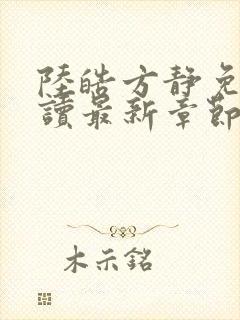 陸皓方靜免
讀最新章節
木示銘